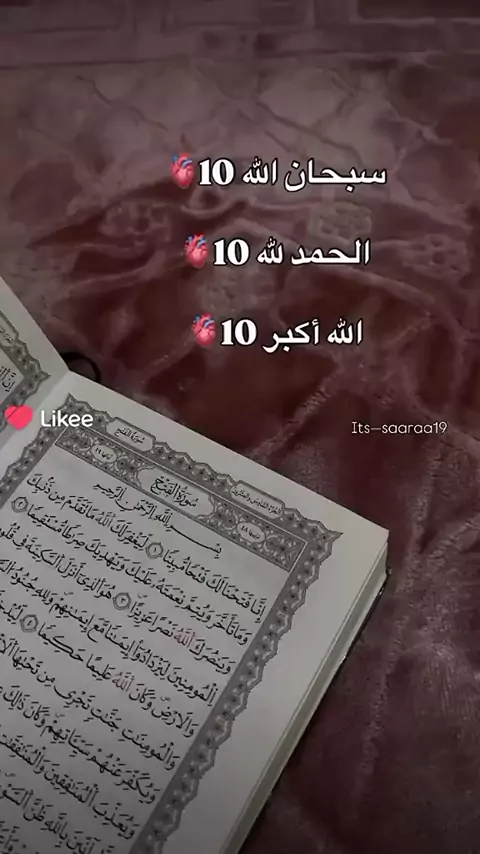 سبحان الله 10🫀
الحمد لله 10🫀
الله أكبر 10🫀
Likee
Its—saaraa19
سورة الفتح
الجزء السادس والعشرون
سُورَةُ الفَتْحِ
بِسْمِ اللَّهِ الرَّحْمَٰنِ الرَّحِيمِ
إِنَّا فَتَحْنَا لَكَ فَتْحًا مُّبِينًا ١ لِّيَغْفِرَ لَكَ اللَّهُ مَا تَقَدَّمَ مِن ذَنۢبِكَ
وَمَا تَأَخَّرَ وَيُتِمَّ نِعْمَتَهُ عَلَيْكَ وَيَهْدِيَكَ صِرَاطًا مُّسْتَقِيمًا ٢
وَيَنصُرَكَ اللَّهُ نَصْرًا عَزِيزًا ٣ هُوَ الَّذِي أَنزَلَ السَّكِينَةَ فِي قُلُوبِ
الْمُؤْمِنِينَ لِيَزْدَادُوا إِيمَانًا مَّعَ إِيمَانِهِمْ وَلِلَّهِ جُنُودُ
وَالْأَرْضِ وَكَانَ اللَّهُ عَلِيمًا حَكِيمًا ٤
وَالْمُؤْمِنَاتِ جَنَّاتٍ تَجْرِي مِن تَحْتِهَا
وَيُكَفِّرَ عَنْهُمْ سَيِّئَاتِهِمْ وَكَانَ ذَٰلِكَ
وَيُعَذِّبَ الْمُنَافِقِينَ وَالْمُنَافِقَاتِ
بِاللَّهِ ظَنَّ السَّوْءِ